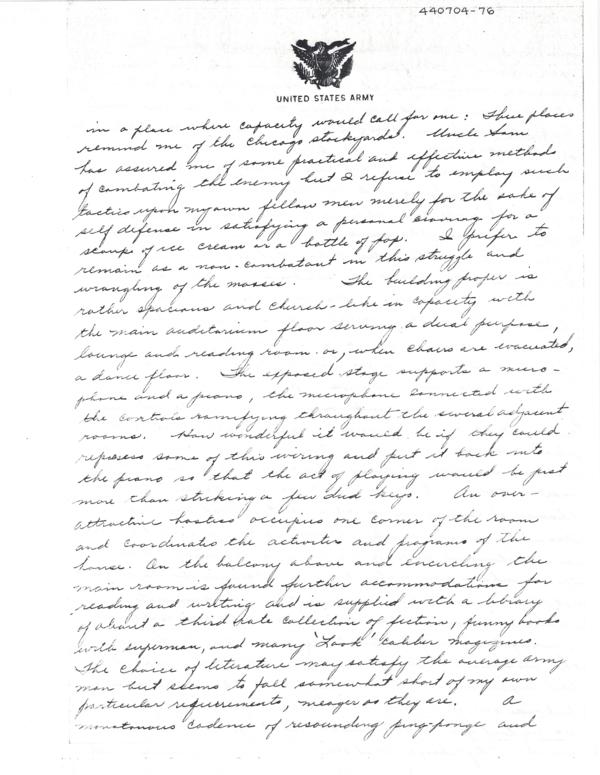 440704-76
UNITED STATES ARMY
in a place where capacity would call for one: These places
remind me of the Chicago stockyards. Uncle Sam
has assured me of some practical and effective methods
of combating the enemy but I refuse to employ such
tactics upon my own fellow men merely for the sake of
self defense in satisfying a personal craving for a
scoup of ice cream or a bottle of pop. I prefer to
remain as a non-combatant in this struggle and
wrangling of the masses. The building proper is
rather spacious and church-like in capacity with
the main auditorium floor serving a dual purpose,
lounge and reading room or, when chairs are evacuated,
a dance floor. The exposed stage supports a micro-
phone and a piano, the microphone connected with
the controls ramifying throughout the several adjacent
rooms. How wonderful it would be if they could
repossess some of this wiring and put it back into
the piano so that the act of playing would be just
more than striking a few dud keys. An over-
attractive hostess occupies one corner of the room
and coordinates the activities and programs of the
house. On the balcony above and encircling the
main room is found further accommodations for
reading and writing and is supplied with a library
of about a third rate collection of fiction, funny books
with superman, and many 'Look' caliber magazines.
The choice of literature may satisfy the average army
man but seems to fall somewhat short of my own
particular requirements, meager as they are. A
monotonous cadence of resounding ping-ponge and